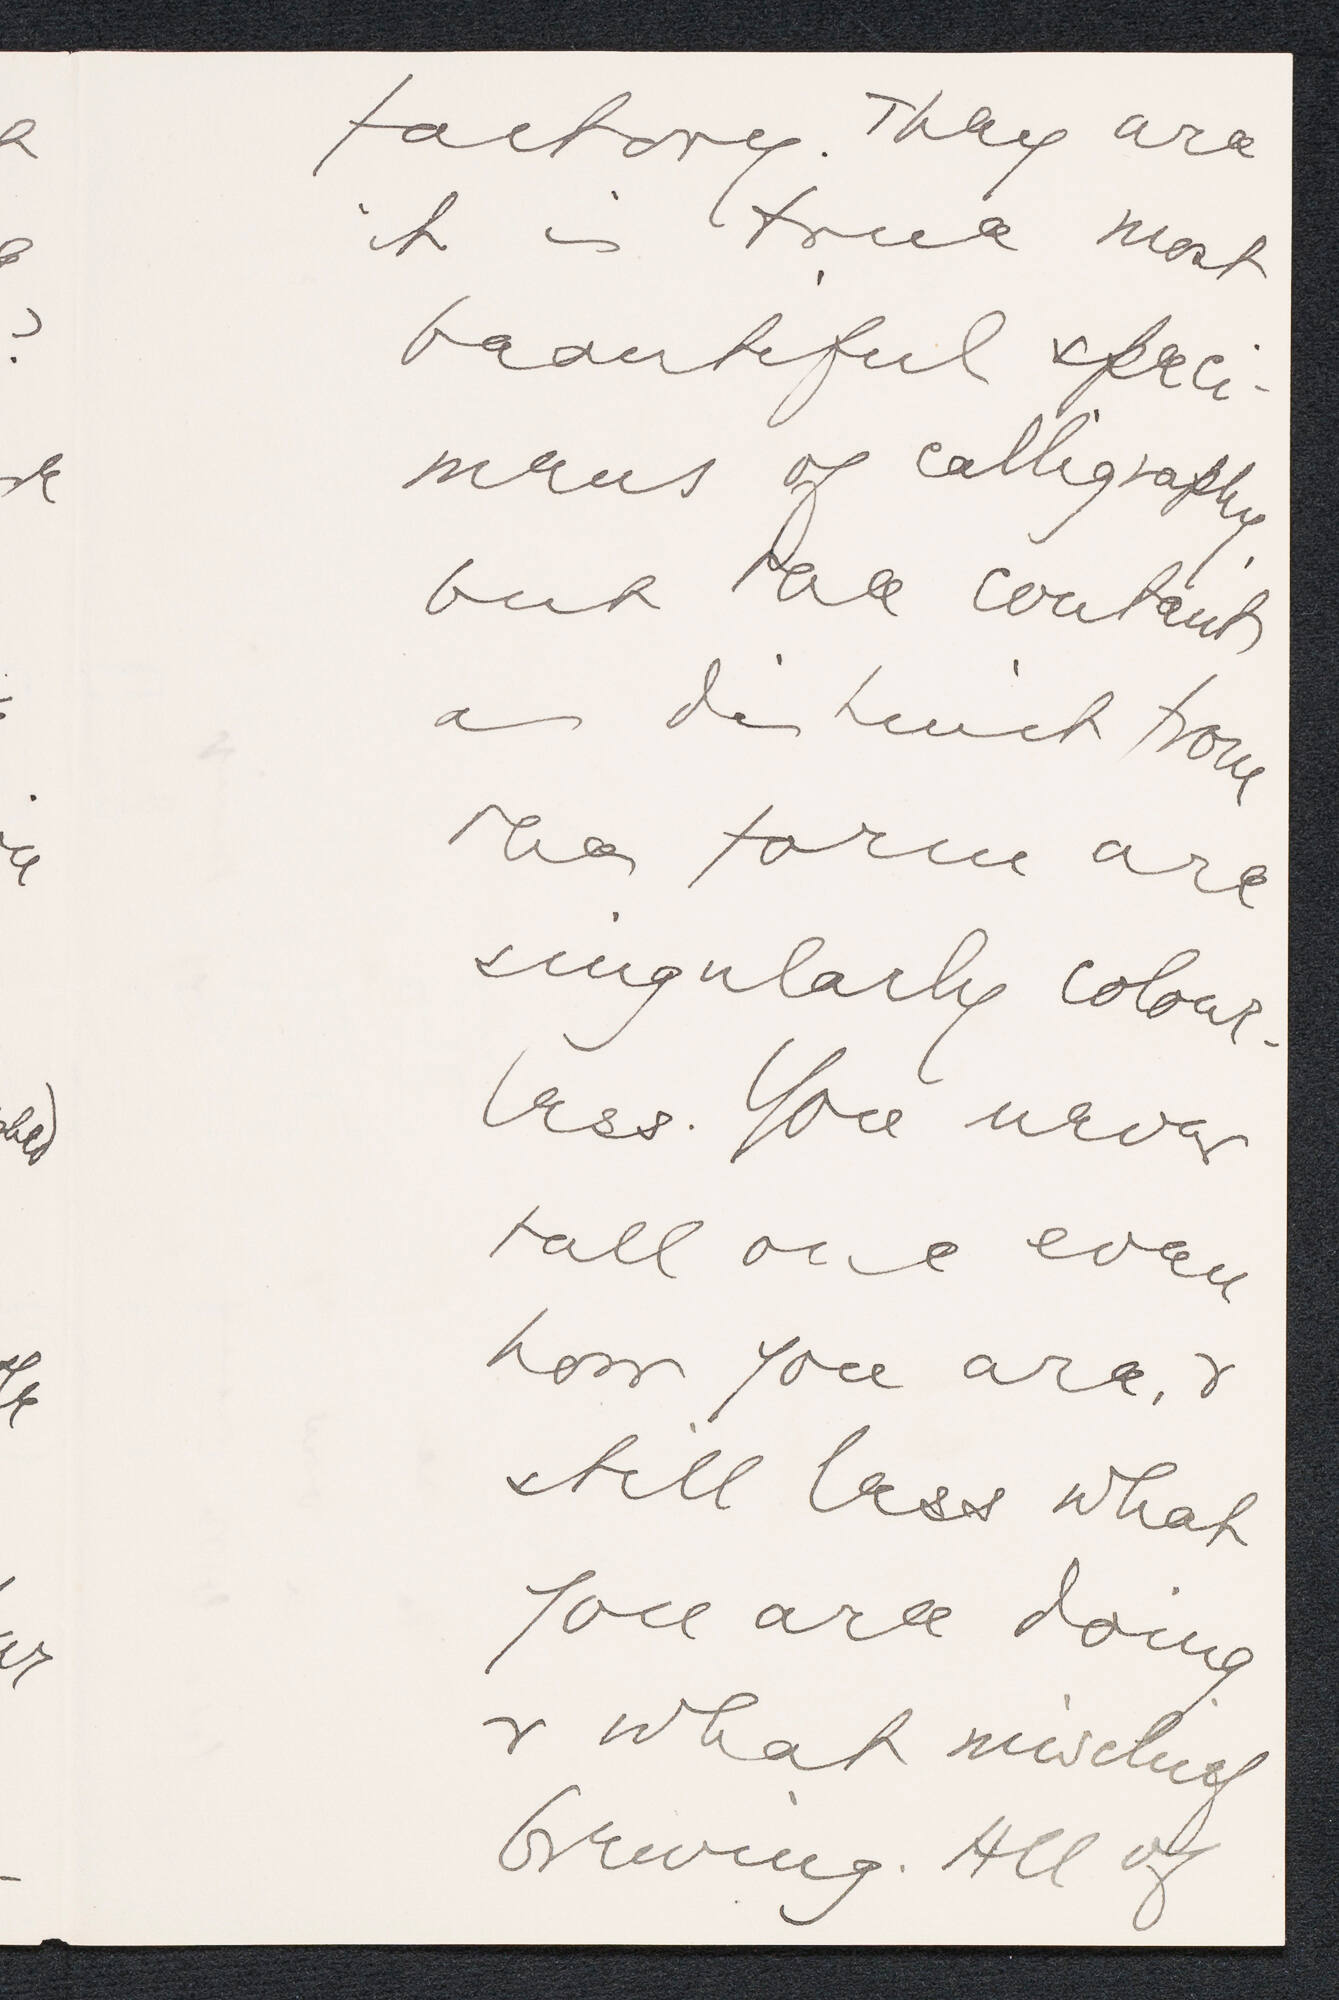 factory. They are
it is true most
beautiful speci-
mens of calligraphy,
but the contents
as distinct from
the form are
singularly colour-
less. You never
tell one even
how you are, &
still less what
you are doing
& what mischief
brewing. All of